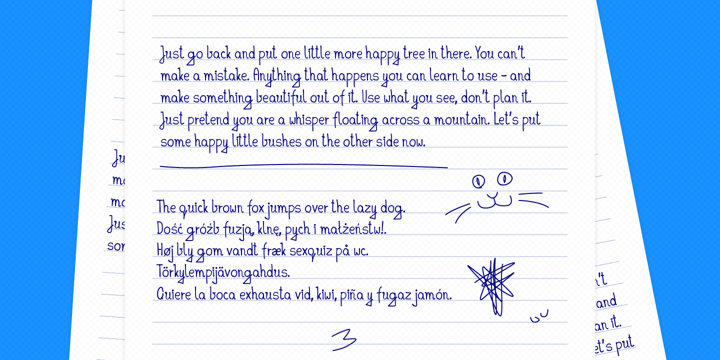 Just go back and put one little more happy tree in there. You can't
make a mistake. Anything that happens you can learn to use - and
make something beautiful out of it. Use what you see, don't plan it.
Just pretend you are a whisper floating across a mountain. Let's put
some happy little bushes on the other side now.
The quick brown fox jumps over the lazy dog.
Dość gróźb fuzją, klnę, pych i małżeństw!.
Høj bly gom vandt fræk sexquiz på wc.
Törkylempijävongahdus.
Quiere la boca exhausta vid, kiwi, piña y fugaz jamón.
3
and
it.
put